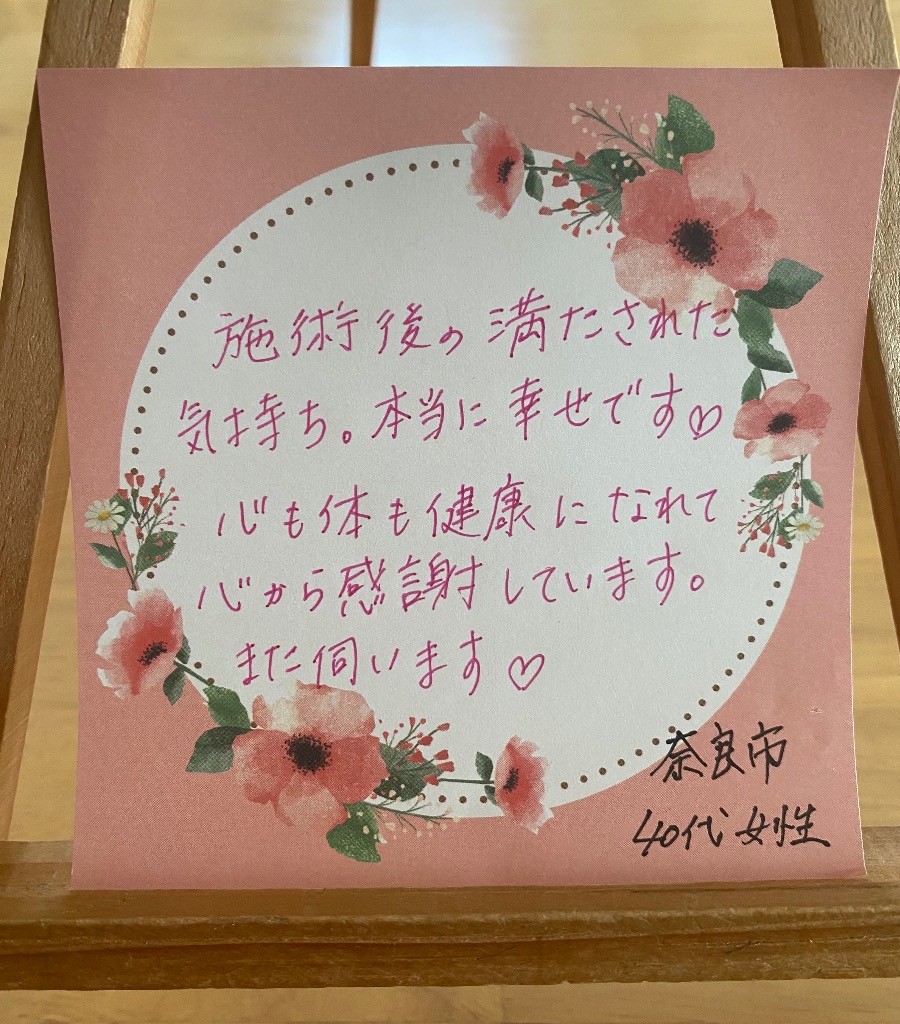 施術後の満たされた
気持ち。本当に幸せです♡
心も体も健康になれて
心から感謝しています。
また伺います♡
奈良市
40代女性